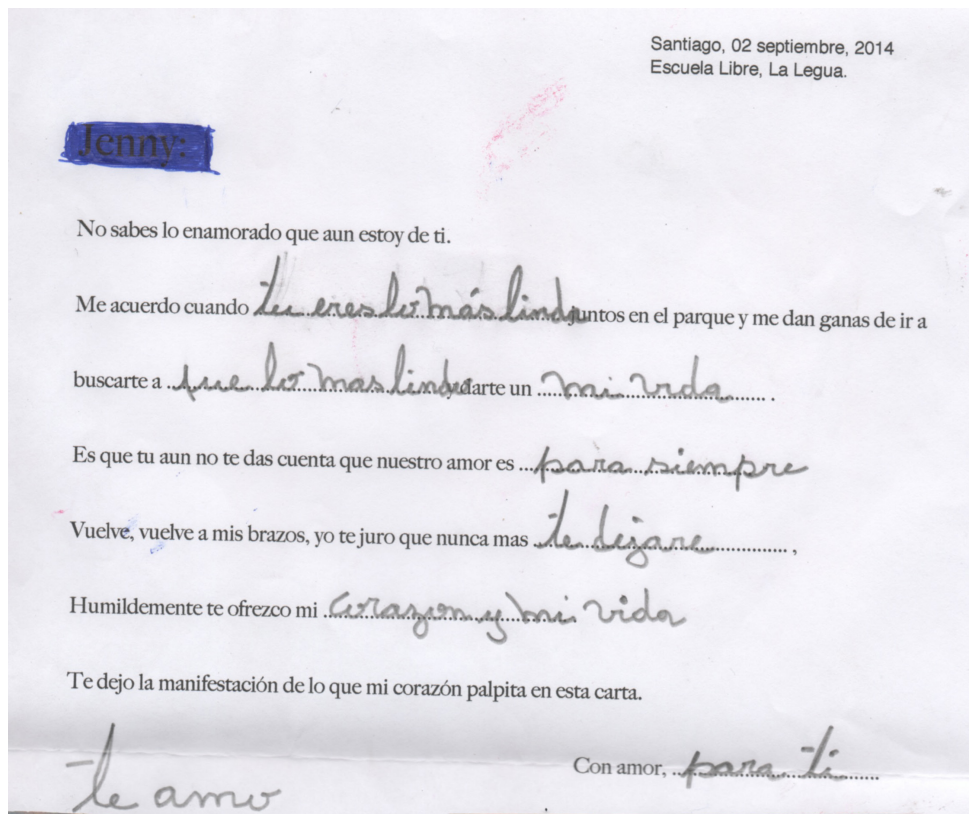 Santiago, 02 septiembre, 2014
Escuela Libre, La Legua.
Jenny:
No sabes lo enamorado que aun estoy de ti.
Me acuerdo cuando tu eres lo más lindo juntos en el parque y me dan ganas de ir a
buscarte a que lo mas lindo y darte un mi vida .
Es que tu aun no te das cuenta que nuestro amor es para siempre
Vuelve, vuelve a mis brazos, yo te juro que nunca mas te dejare ,
Humildemente te ofrezco mi corazon y mi vida
Te dejo la manifestación de lo que mi corazón palpita en esta carta.
Con amor, para ti
te amo